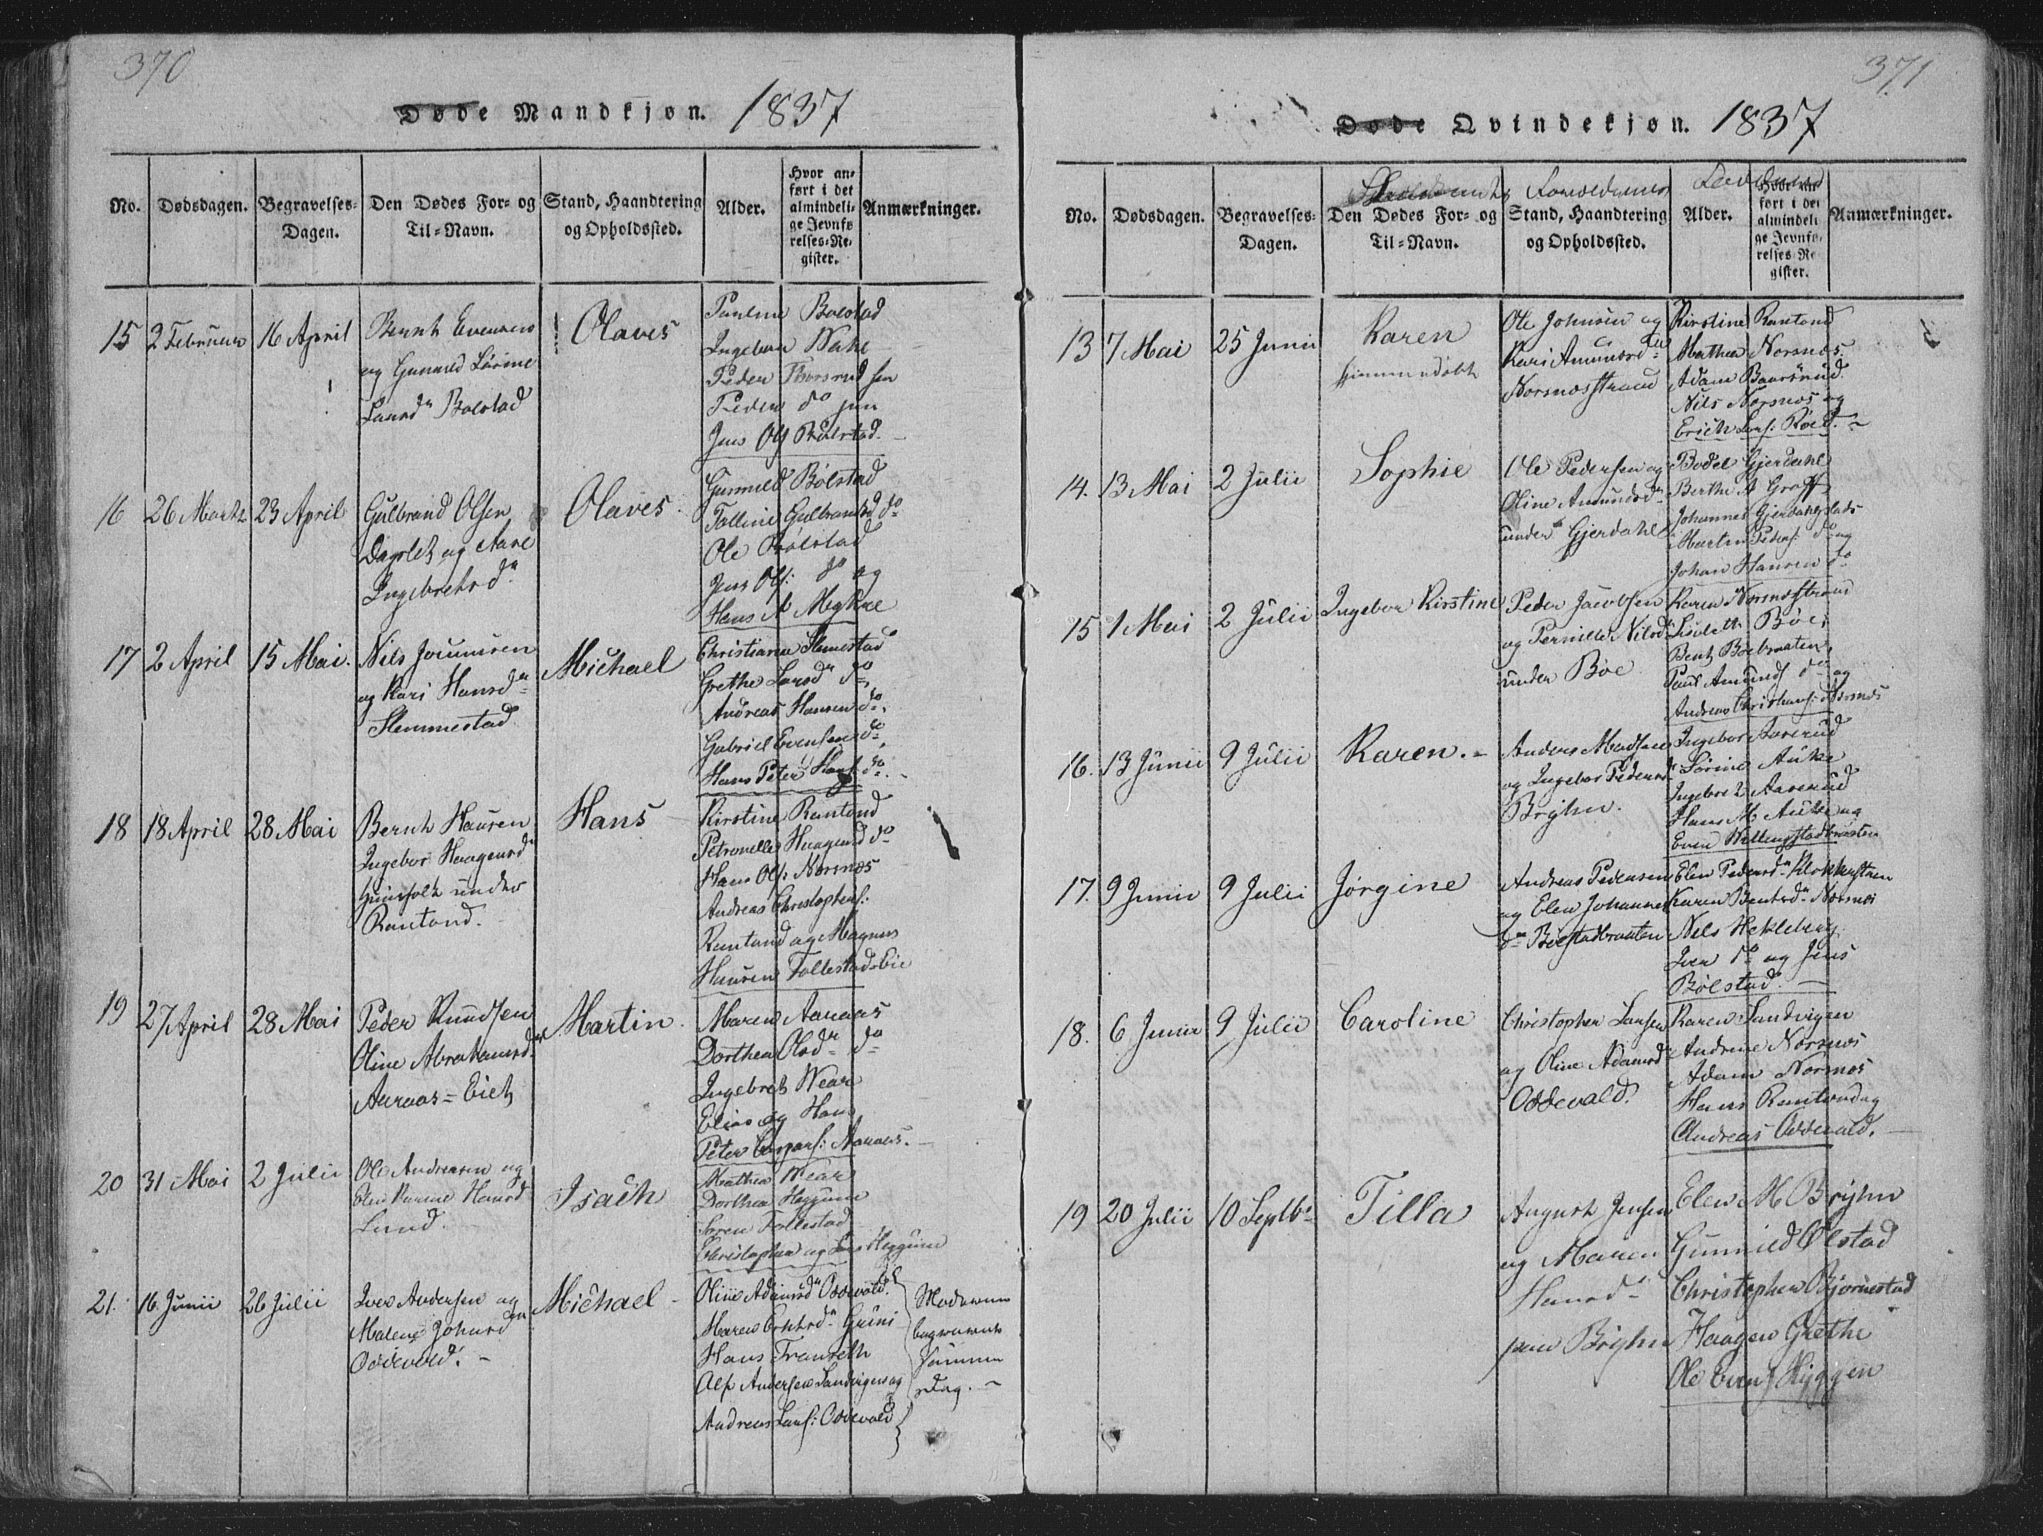 370
Døde Mandkjøn. 1837
No.
Dødsdagen.
Begravelses-
Dagen.
Den Dødes For- og
Til-Navn.
Stand, Haandtering
og Opholdssted.
Alder.
Hvor an-
ført i det
almindeli-
ge Jevnfø-
relses-Re-
gister.
Anmærkninger.
15 2 Februar 16 April
Bernt Evensen
og Gunnild Sørine
Larsdr Bolstad
Olaves
Pauline Bolstad
Ingebor
Peder
Peder do jun
Jens Ols
16 26 Marts 23 April
Gulbrand Olsen
og Aase
Ingebretsdr
Olaves
Gunnild Bølstad
Ole Bølstad
Jens Ols: do og
Hans A
17 2 April 15 Mai.
Nils
og Kari Hansdr
Slemmestad
Michael
Christiane Slemestad
Grethe Larsdr do,
Andreas Hansen do.
Gabriel Evensen do,
Hans Peter Hans: do. -
18 18 April 28 Mai
Bernt Hansen
Ingebor Haagensd
under
Rantond.
Hans
Kirstine Rantond
Petronelle Haagensd do
Hans Ols: Nærsnæs
Andreas Christophers:
Rantond og Magnus
Hansen Follestad Eie
19 27 April 28 Mai
Peder Knudsen
Oline Abrahamsdr
Aaraas=Eiet
Martin
Maren Aaraas
Dorthea Olsdr do
Ingebret Wear
Elias og Hans
Peter Caspars: Aaraas. -
20 31 Mai 2 Julii
Ole Andreasen og
Hansd
Lund.
Isach
Mathea Wear
Dorthea Heggum
Søren Follestad
Christopher og Lars Heggum
21. 16 Junii 26 Julii
Iver Andersen og
Malene Johnsd
Oddevald. -
Michael
Oline Adamsdr Oddevald.
Maren
Hans Franseth
Alf Andersen Sandvigen og
Andreas Lars: Oddevald
Moderen
begravet
samme
Dag. -
371
Døde Qvindekjøn. 1837
Forældrenes
Fadderne
No.
Dødsdagen.
Begravelses-
Dagen.
Den Dødes For- og
Til-Navn.
Stand, Haandtering
og Opholdssted.
Alder.
Hvor an-
ført i det
almindeli-
ge Jevnfø-
relses-Re-
gister.
Anmærkninger.
13 7 Mai 25 Junii
Karen
hjemmedøbt
Ole Johnsen og
Kari Amundsdr
Nærsnæsstrand
Kirstine Rantond
Mathea Nærsnæs
Adam Baarsrud.
Nils Nærsnæs og
Erich Lars: Røed. -
14. 13 Mai 2 Julii
Sophie
Ole Pedersen og
Oline Amundsdr
under Gjerdahl
Bodel Gjerdahl
Berthe A Graff
Johannes
Martin Peders: do og
Johan Hansen do
15 1 Mai 2 Julii
Ingebor Kirstine
Peder Jacobsen
og Pernille Nilsdr
under Bøe
Karen Nærsnæsstrand
Liseleth Bøe,
Bent Bøebraaten,
Paul Amunds do og
Andreas Christians: Nærsnæs
16. 13 Junii 9 Julii
Karen. -
Anders Madsen
og Ingebor Pedersd
Brÿhn.
Ingebor Aaserud
Sørine Auke
Ingebor L Aaserud
Hans M Auke og
Even
17. 9 Junii 9 Julii
Jørgine
Andreas Pedersen
og Elen Johannes
dr Bølstadbraaten
Elen Pedersdr
Karen Bentsdr Nærsnæs
Nils Hekleberg,
Iver do og Jens
Bølstad. -
18. 6 Junii 9 Julii
Caroline
Christopher Larsen
og Oline Adamsdr
Oddevald.
Karen Sandvigen
Andrine Nærsnæs
Adam Nærsnæs
Hans Rantond og
Andreas Oddevald. -
19 20 Julii 10 Septbr
Tilla
August Jensen
og Maren
Hansdr
paa Brÿhn
Elen M Brÿhn
Gunnild Ølstad
Christopher Bjørnestad
Haagen Grethe
Ole Evens Hyggen